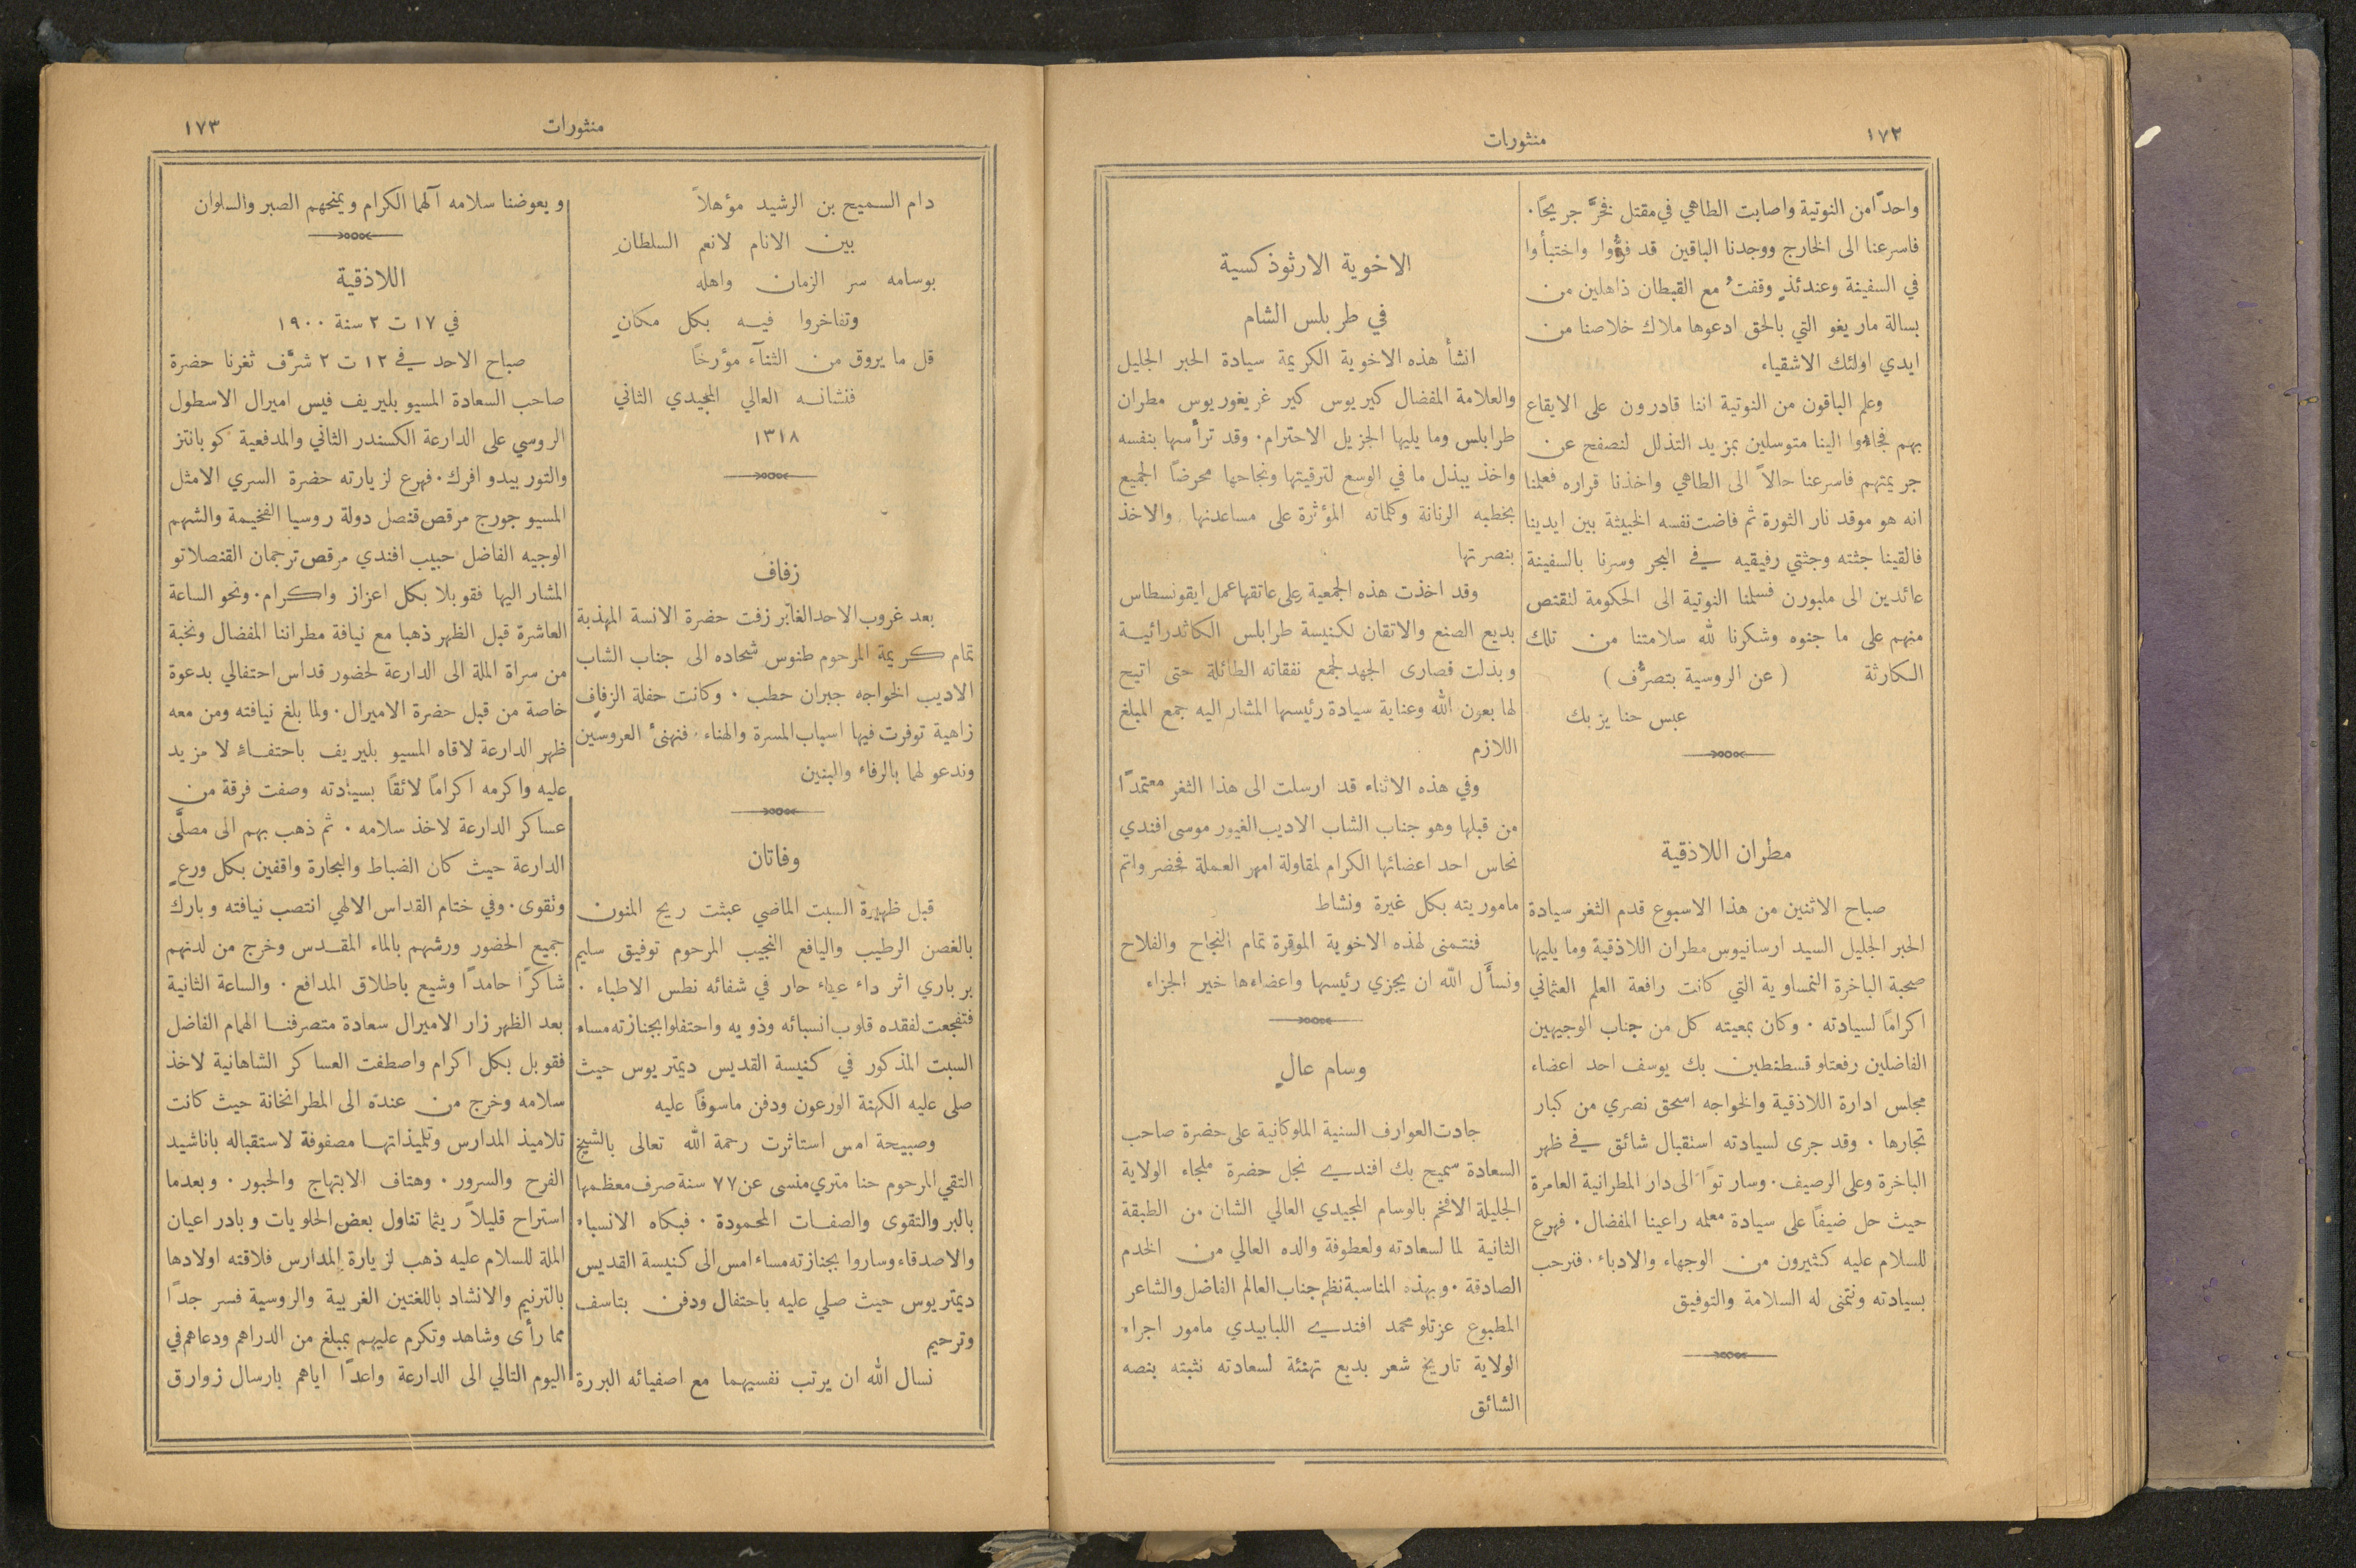 ١٧٢
منثورات
واحدًا من النوتية واصابت الطاهي في مقتل فخرَّ جريحًا.
فاسرعنا الى الخارج ووجدنا الباقين قد فرُّوا واختبأوا
في السفينة وعندئذٍ وقفتُ مع القبطان ذاهلين من
بسالة ماريغو التي بالحق ادعوها ملاك خلاصنا من
ايدي اولئك الاشقياء
وعلم الباقون من النوتية اننا قادرون على الايقاع
بهم فجاءوا الينا متوسلين بمزيد التذلل لنصفح عن
جريمتهم فاسرعنا حالاً الى الطاهي واخذنا قراره فعلمنا
انه هو موقد نار الثورة ثم فاضت نفسه الخبيثة بين ايدينا
فالقينا جثته وجثتي رفيقيه في البحر وسرنا بالسفينة
عائدين الى ملبورن فسلمنا النوتية الى الحكومة لتقتص
منهم على ما جنوه وشكرنا لله سلامتنا من تلك
الكارثة ( عن الروسية بتصرُّف )
عبس حنا يزبك
مطران اللاذقية
صباح الاثنين من هذا الاسبوع قدم الثغر سيادة
الحبر الجليل السيد ارسانيوس مطران اللاذقية وما يليها
صحبة الباخرة النمساوية التي كانت رافعة العلم العثماني
اكرامًا لسيادته . وكان بمعيته كل من جناب الوجيهين
الفاضلين رفعتلو قسطنطين بك يوسف احد اعضاء
مجلس ادارة اللاذقية والخواجه اسحق نصري من كبار
تجارها . وقد جرى لسيادته استقبال شائق في ظهر
الباخرة وعلى الرصيف . وسار توًا الى دار المطرانية العامرة
حيث حل ضيفًا على سيادة معلمه راعينا المفضال . فهرع
للسلام عليه كثيرون من الوجهاء والادباء . فنرحب
بسيادته ونتمنى له السلامة والتوفيق
الاخوية الارثوذكسية
في طرابلس الشام
انشأ هذه الاخوية الكريمة سيادة الحبر الجليل
والعلامة المفضال كيريوس كير غريغوريوس مطران
طرابلس وما يليها الجزيل الاحترام . وقد ترأَّسها بنفسه
واخذ يبذل ما في الوسع لترقيتها ونجاحها محرضًا الجميع
بخطبه الرنانة وكلماته المؤثرة على مساعدتها والاخذ
بنصرتها
وقد اخذت هذه الجمعية على عاتقها عمل ايقونسطاس
بديع الصنع والاتقان لكنيسة طرابلس الكاثدرائية
وبذلت قصارى الجهد لجمع نفقاته الطائلة حتى اتيح
لها بعون الله وعناية سيادة رئيسها المشار اليه جمع المبلغ
اللازم
وفي هذه الاثناء قد ارسلت الى هذا الثغر معتمدًا
من قبلها وهو جناب الشاب الاديب الغيور موسى افندي
نحاس احد اعضائها الكرام لمقاولة امهر العملة فحضر واتم
ماموريته بكل غيرة ونشاط
فنتمنى لهذه الاخوية الموقرة تمام النجاح والفلاح
ونسأَل الله ان يجزي رئيسها واعضاءها خير الجزاء
وسام عالٍ
جادت العوارف السنية الملوكانية على حضرة صاحب
السعادة سميح بك افندي نجل حضرة ملجاء الولاية
الجليلة الافخم بالوسام المجيدي العالي الشان من الطبقة
الثانية لما لسعادته ولعطوفة والده العالي من الخدم
الصادقة . وبهذه المناسبة نظم جناب العالم الفاضل والشاعر
المطبوع عزتلو محمد افندي اللبابيدي مامور اجراء
الولاية تاريخ شعر بديع تهنئة لسعادته نثبته بنصه
الشائق
منثورات
١٧٣
دام السميح بن الرشيد مؤهلاً
بين الانام لانعم السلطانِ
بوسامه سر الزمان واهله
وتفاخروا فيه بكل مكانِ
قل ما يروق من الثنآء مؤرخًا
فنشانه العالي المجيدي الثاني
١٣١٨
زفاف
بعد غروب الاحد الغابر زفت حضرة الانسة المهذبة
تمام كريمة المرحوم طنوس شحاده الى جناب الشاب
الاديب الخواجه جبران حطب . وكانت حفلة الزفاف
زاهية توفرت فيها اسباب المسرة والهناء . فنهنئ العروسين
وندعو لهما بالرفاء والبنين
وفاتان
قبل ظهيرة السبت الماضي عبثت ريح المنون
بالغصن الرطيب واليافع النجيب المرحوم توفيق سليم
بربـاري اثر داء عياء حار في شفائه نطس الاطباء .
فتفجعت لفقده قلوب انسبائه وذويه واحتفلوا بجنازته مساء
السبت المذكور في كنيسة القديس ديمتريوس حيث
صلى عليه الكهنة الورعون ودفن ماسوفًا عليه
وصبيحة امس استاثرت رحمة الله تعالى بالشيخ
التقي المرحوم حنا متري منسى عن ٧٧ سنة صرف معظمها
بالبر والتقوى والصفات المحمودة . فبكاه الانسباء
والاصدقاء وساروا بجنازته مساء امس الى كنيسة القديس
ديمتريوس حيث صلي عليه باحتفال ودفن بتاسف
وترحيم
نسال الله ان يرتب نفسيهما مع اصفيائه البررة
ويعوضنا سلامه آلهما الكرام ويمنحهم الصبر والسلوان
اللاذقية
في ١٧ ت ٢ سنة ١٩٠٠
صباح الاحد في ١٢ ت ٢ شرَّف ثغرنا حضرة
صاحب السعادة المسيو بليريف فيس اميرال الاسطول
الروسي على الدارعة الكسندر الثاني والمدفعية كوبانتز
والتوربيدو افرك . فهرع لزيارته حضرة السري الامثل
المسيو جورج مرقص قنصل دولة روسيا الفخيمة والشهم
الوجيه الفاضل حبيب افندي مرقص ترجمان القنصلاتو
المشار اليها فقوبلا بكل اعزاز واكرام . ونحو الساعة
العاشرة قبل الظهر ذهبا مع نيافة مطراننا المفضال ونخبة
من سراة الملة الى الدارعة لحضور قداس احتفالي بدعوة
خاصة من قبل حضرة الاميرال . ولما بلغ نيافته ومن معه
ظهر الدارعة لاقاه المسيو بليريف باحتفاء لا مزيد
عليه واكرمه اكرامًا لائقًا بسيادته وصفت فرقة من
عساكر الدارعة لاخذ سلامه . ثم ذهب بهم الى مصلَّى
الدارعة حيث كان الضباط والبحارة واقفين بكل ورعٍ
وتقوى . وفي ختام القداس الالهي انتصب نيافته وبارك
جميع الحضور ورشهم بالماء المقدس وخرج من لدنهم
شاكرًا حامدًا وشيع باطلاق المدافع . والساعة الثانية
بعد الظهر زار الاميرال سعادة متصرفنا الهمام الفاضل
فقوبل بكل اكرام واصطفت العساكر الشاهانية لاخذ
سلامه وخرج من عنده الى المطرانخانة حيث كانت
تلاميذ المدارس وتلميذاتها مصفوفة لاستقباله باناشيد
الفرح والسرور . وهتاف الابتهاج والحبور . وبعدما
استراح قليلاً ريثما تناول بعض الحلويات وبادر اعيان
الملة للسلام عليه ذهب لزيارة المدارس فلاقته اولادها
بالترنيم والانشاد باللغتين العربية والروسية فسر جدًا
مما رأى وشاهد وتكرم عليهم بمبلغ من الدراهم ودعاهم في
اليوم التالي الى الدارعة واعدًا اياهم بارسال زوارق